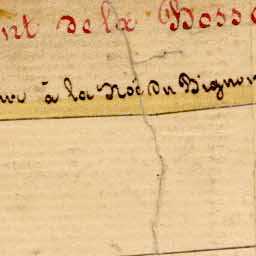 nt de la Bosse
à la Noë du Bignon